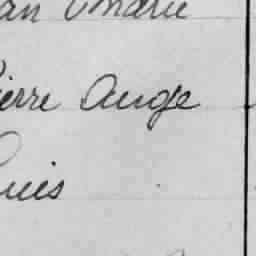 an Marie
ierre Ange
ouis